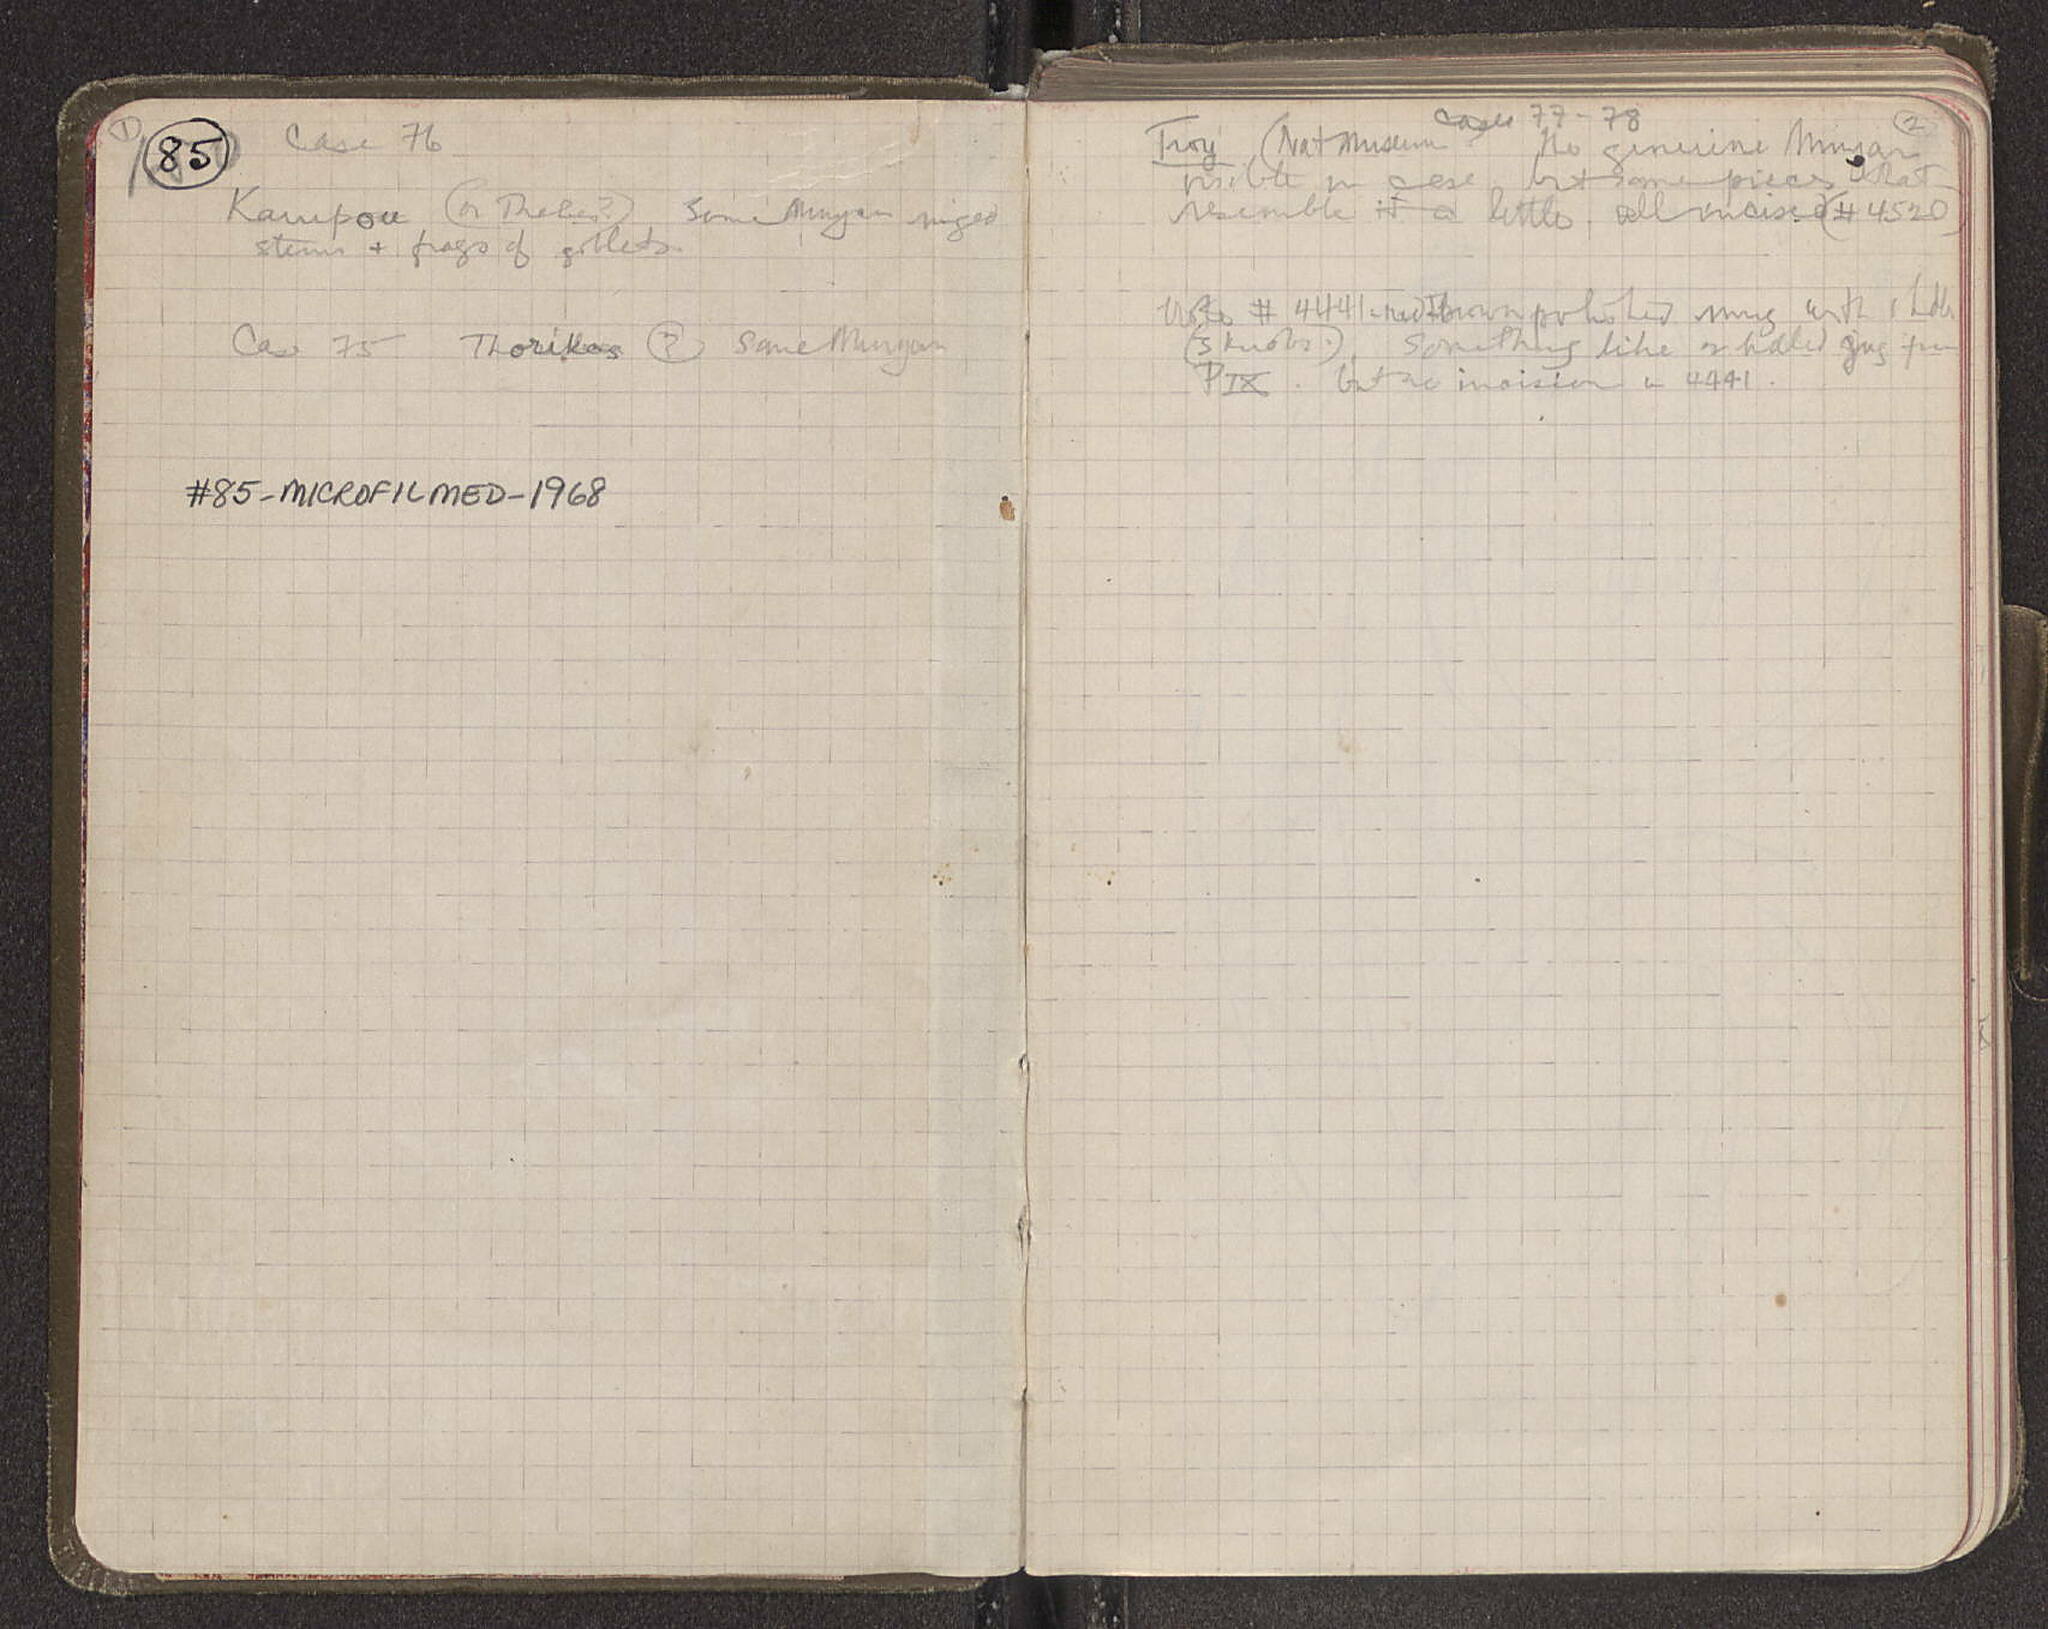 1
85
Case 76
Kampou (or Thebes?) Some Minyan ringed
stems + frags of goblets.
Case 75 Thorikos (?) Some Minyan
#85-MICROFILMED-1968
2
Cases 77-78
Troy (Nat Museum) No genuine Minyan
visible in case but some pieces that
resemble it a little. all incised (#4520)
# 4441 - red-brown polished mug with 1 hdle
(3 knobs?). Something like hdled jug from
PIX. but no incision on 4441.